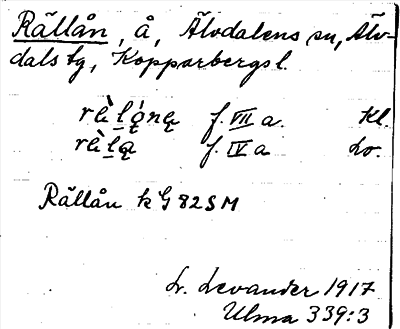 Rällån, å, Älvdalens sn, Älv-
dals tg, Kopparbergs l.
f. VII a. Kl.
f. IV a Lo.
Rällån k G 82 S M
L. Levander 1917
Ulma 339:3